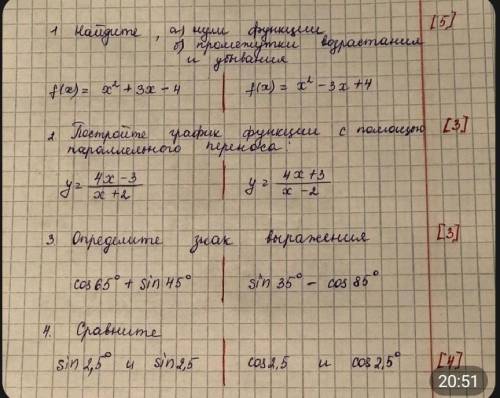 1 Найдите, а) нули функции [5]
б) промежутки возрастания
и убывания
f(x) = x² + 3x - 4 f(x) = x² - 3x + 4
2 Постройте график функции с помощью [3]
параллельного переноса:
y = (4x - 3)/(x + 2) y = (4x + 3)/(x - 2)
3 Определите знак выражения [3]
cos 65° + sin 45° sin 35° - cos 85°
4. Сравните
sin 2,5° и sin 2,5 cos 2,5 и cos 2,5° [4]
20:51